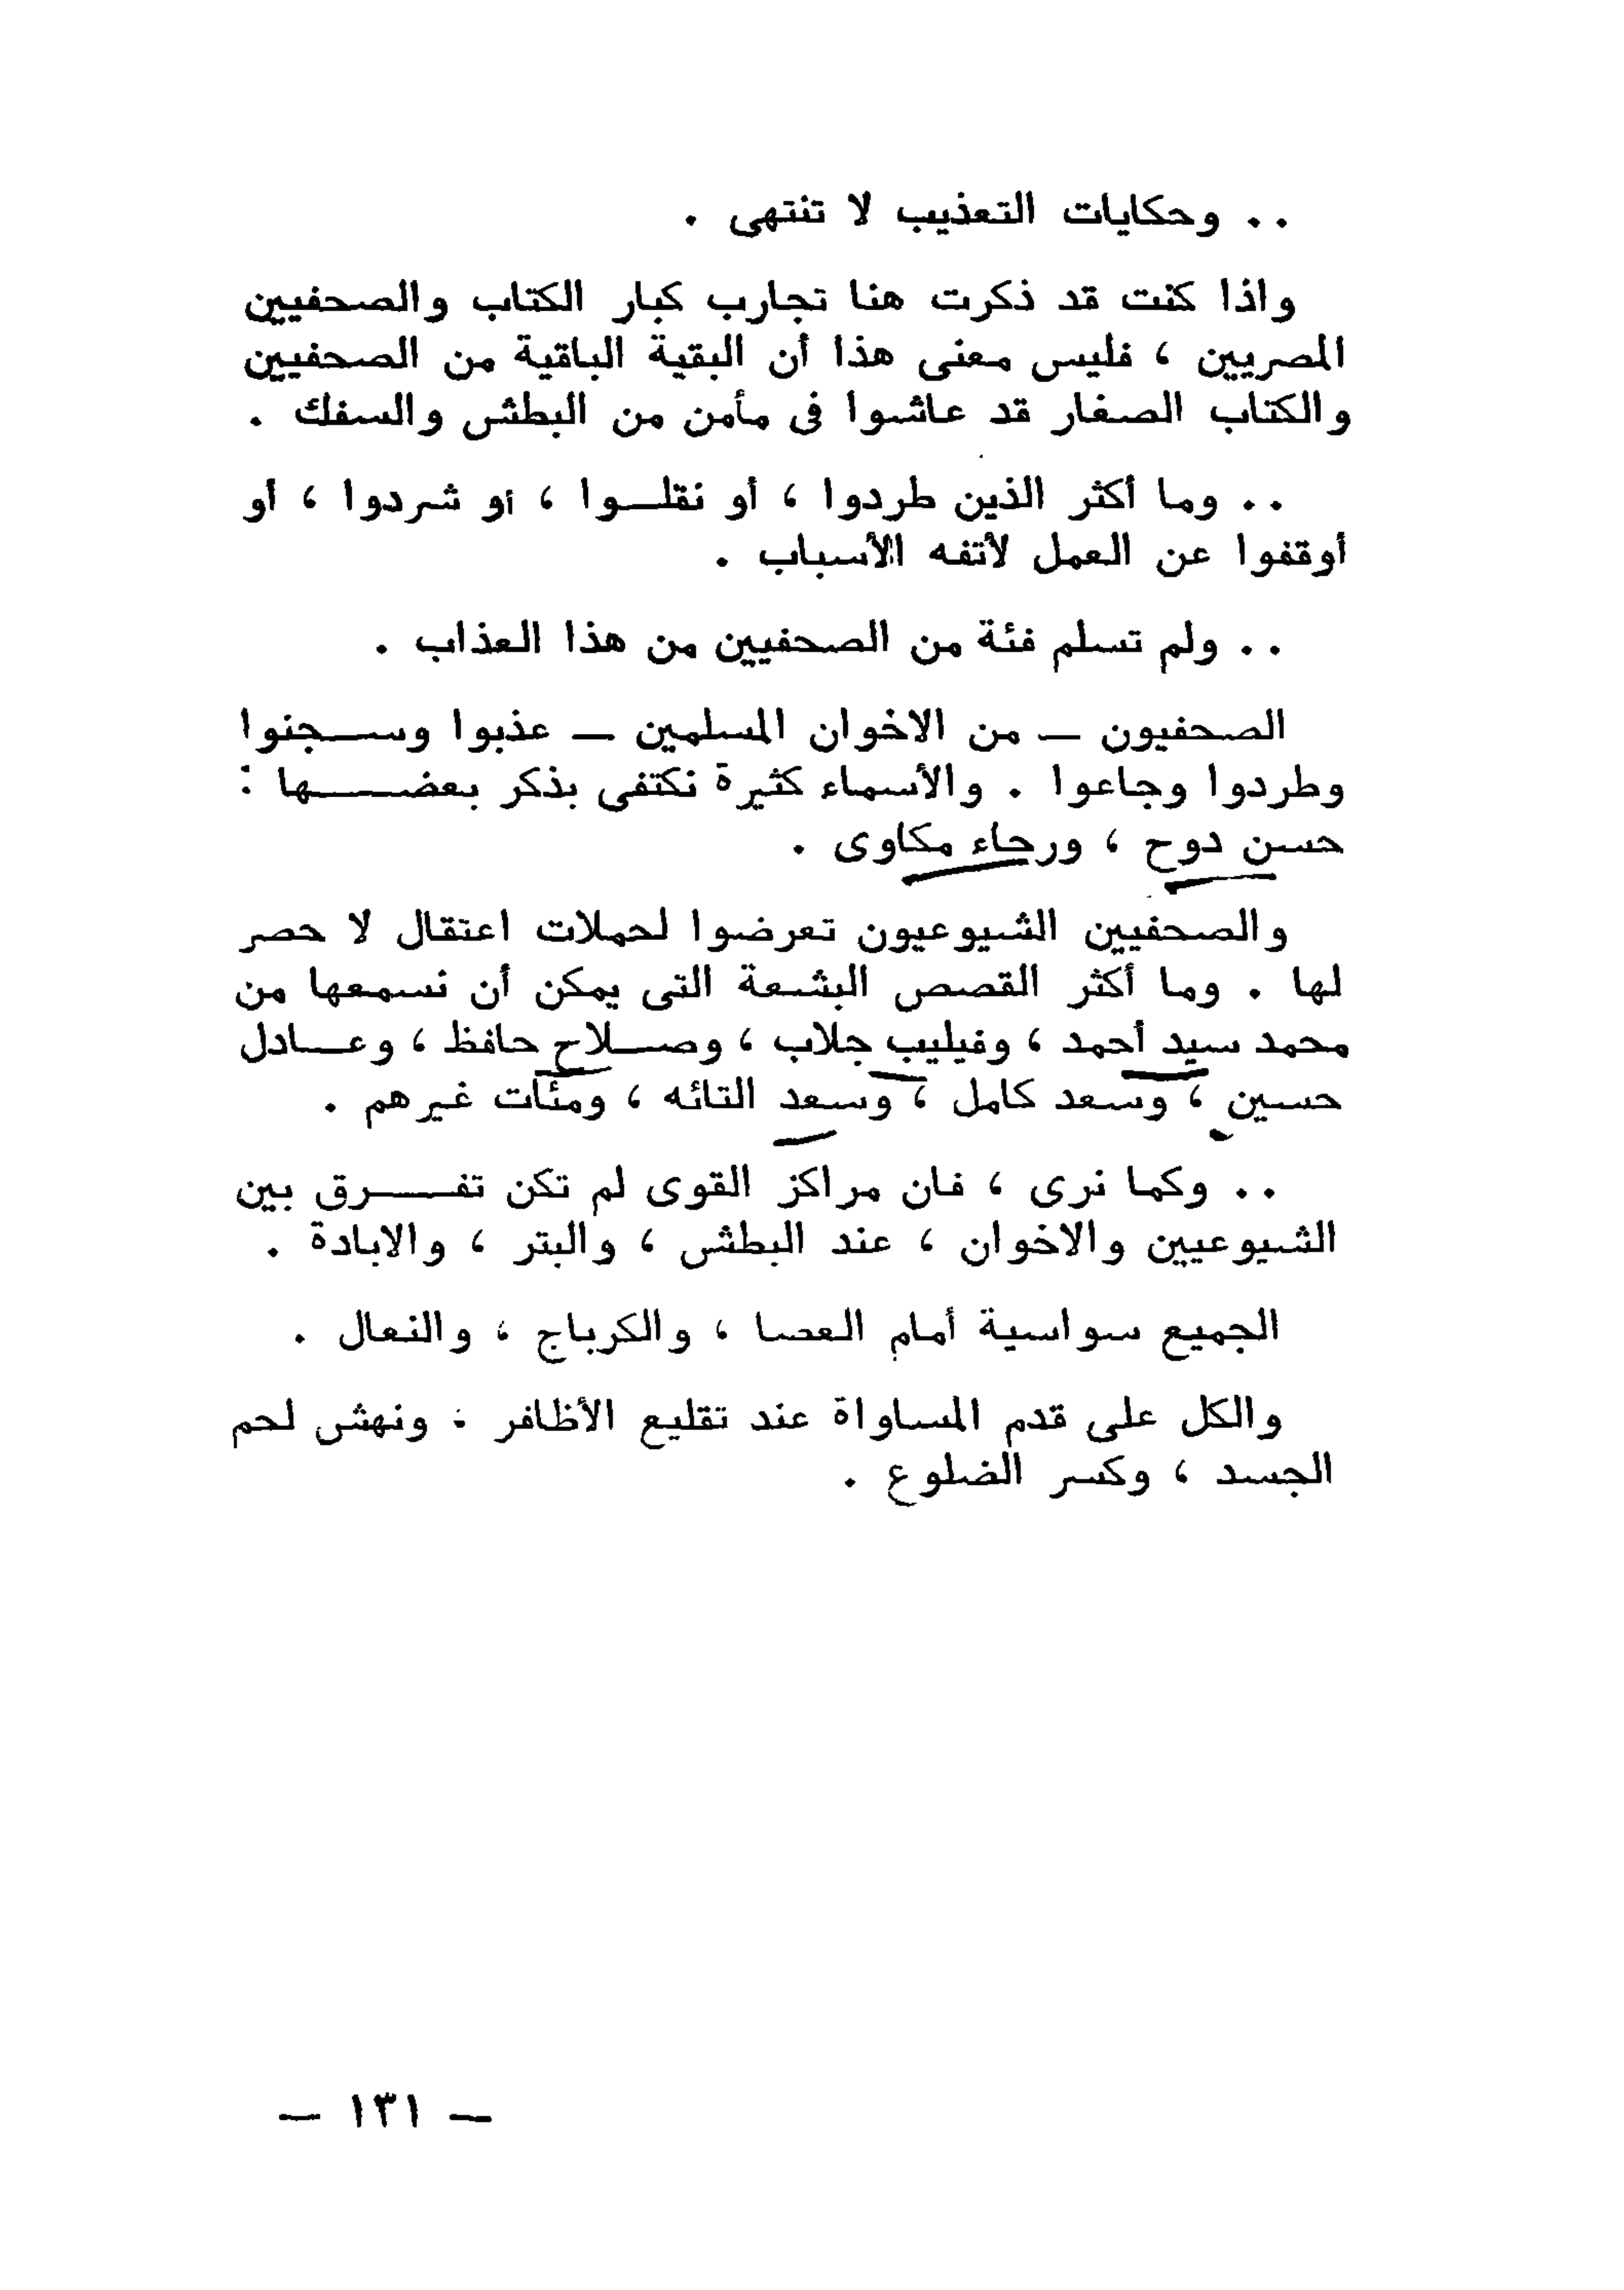 .. وحكايات التعذيب لا تنتهى .
واذا كنت قد ذكرت هنا تجارب كبار الكتاب والصحفيين
المصريين ، فليس معنى هذا أن البقية الباقية من الصحفيين
والكتاب الصغار قد عاشوا فى مأمن من البطش والسفك .
.. وما أكثر الذين طردوا ، أو نقلوا ، أو شردوا ، أو
أوقفوا عن العمل لأتفه الأسباب .
.. ولم تسلم فئة من الصحفيين من هذا العذاب .
الصحفيون — من الاخوان المسلمين — عذبوا وسجنوا
وطردوا وجاعوا . والأسماء كثيرة نكتفى بذكر بعضها :
حسن دوح ، ورجاء مكاوى .
والصحفيين الشيوعيون تعرضوا لحملات اعتقال لا حصر
لها . وما أكثر القصص البشعة التى يمكن أن نسمعها من
محمد سيد أحمد ، وفيليب جلاب ، وصلاح حافظ ، وعادل
حسين ، وسعد كامل ، وسعد التائه ، ومئات غيرهم .
.. وكما نرى ، فان مراكز القوى لم تكن تفرق بين
الشيوعيين والاخوان ، عند البطش ، والبتر ، والابادة .
الجميع سواسية أمام العصا ، والكرباج ، والنعال .
والكل على قدم المساواة عند تقليع الأظافر . ونهش لحم
الجسد ، وكسر الضلوع .
— ١٣١ —